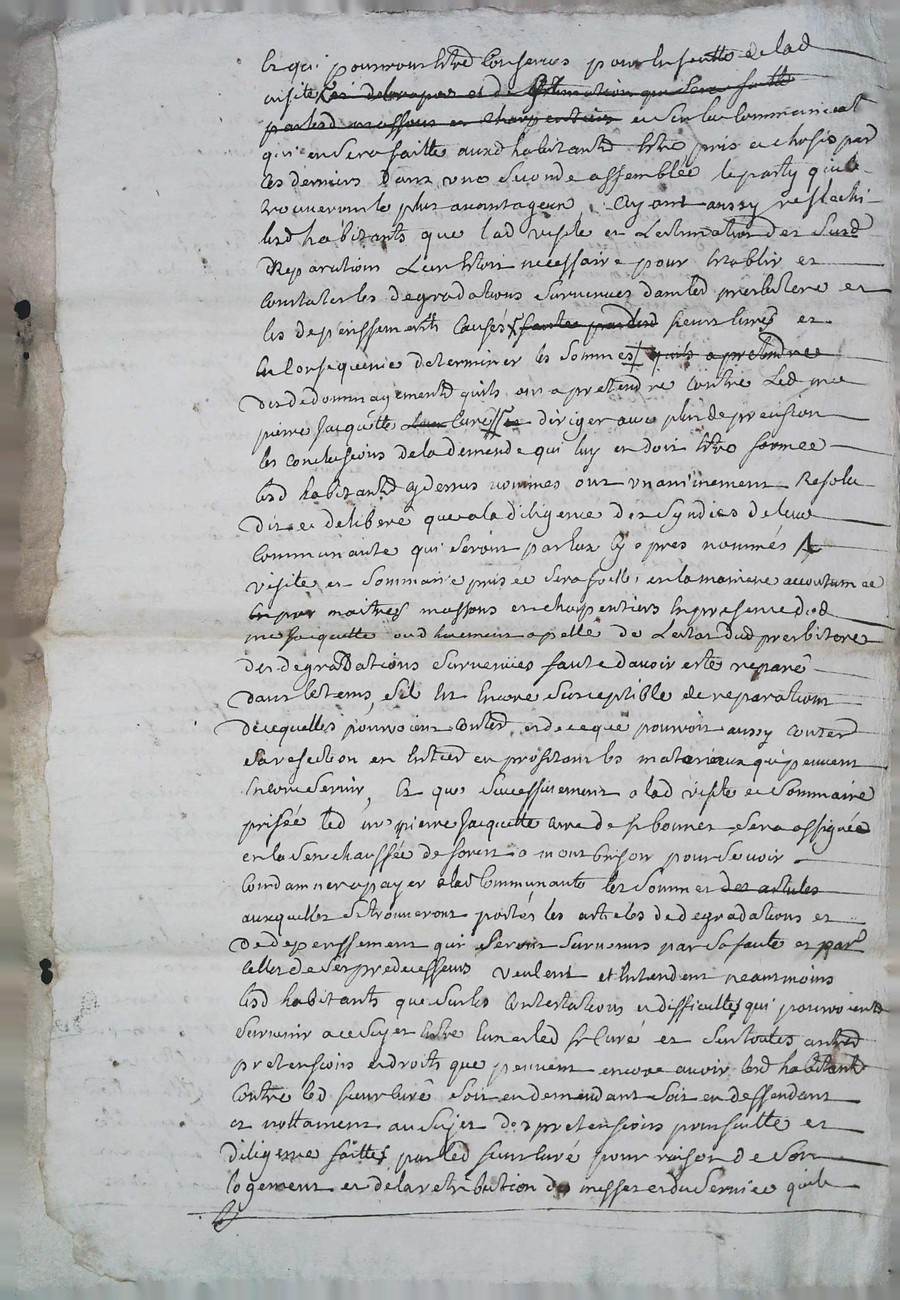 et qui pourront estre conserves pour ensuitte de lad
visite et de l'estimation qui sera faitte
par lesd massons et charpentiers et sur la communicat
qui en sera faitte auxd habitants estre pris et choisis par
ces derniers dans une seconde assemblée le party quils
trouveront le plus avantageux, Ayant aussy reflechi
lesd habitants que lad visite et l'estimation des susd
Reparations leur estoit necessaire pour etablir et
constater les degradations survenues dans led presbitere et
les deperissements causés faute par lesd sieurs curés et
en consequence determiner les sommes quils a pretendre
des dedommagements quils ont a pretendre contre Led me
pierre jacquette curé et diriger avec plus de precision
les conclusions de la demande qui luy en doit estre formee
lesd habitants cy dessus nommés ont unanimement Resolu
et deliberé que a la diligence des syndics de leur
communauté qui seront par eux cy apres nommés
visite et sommaire prisée sera faitte en la maniere accoutumée
par maitres massons et charpentiers en presence dud
me jacquette ou duement apellé de L'estat dud presbitere
des degraddations survenües faute d'avoir esté reparé
dans les tems, s'il est encore susceptible de reparations
de ce quelles pourroient couter et de ce que pourroit aussy couter
sa refection en entier en profitant les materiaux qui peuvent
encore servir, Et que successivement a lad visite et sommaire
prisée led me pierre jacquette curé de st bonnet sera assigné
en la senechaussée de forest a montbrison pour se voir
condamner a payer a lad communauté les sommes des articles
auxquelles se trouveront portés les articles de degradations et
de deperissement qui seront survenus par sa faute et par
celles de ses predecesseurs veulent et entendent neantmoins
lesd habitants que sur les contestations et difficultés qui pourroient
survenir a ce sujet entre eux et led sr curé et sur toutes autres
pretensions et droits que peuvent encore avoir lesd habitants
contre led sieur curé soit en demandant soit en deffendant
et nottament au sujet des pretensions poursuitte et
diligence faittes par led sieur curé pour raison de son
logement et de la retribution des messes et du service quil